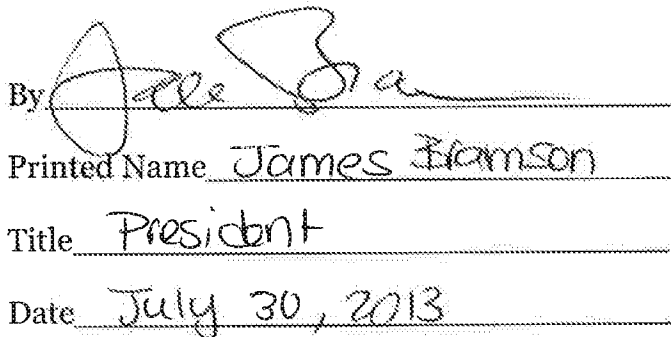 By
Printed Name James Bramson
Title President
Date July 30, 2013